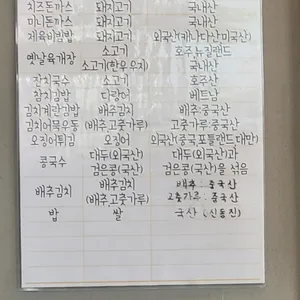 치즈돈까스 돼지고기 국내산
미니돈까스 돼지고기 국내산
제육비빔밥 돼지고기 외국산(캐나다산미국산)
옛날육개장 소고기 호주,뉴질랜드
소고기(한우우지) 국내산
잔치국수 소고기 호주산
참치김밥 다랑어 베트남
김치계란김밥 배추김치 배추:중국산
김치어묵우동 (배추고춧가루) 고춧가루:중국산
오징어튀김 오징어 외국산(중국포틀랜드,대만)
콩국수 대두(외국산) 대두(외국산)과
검은콩(국산) 검은콩(국산)을 섞음
배추김치 배추김치 배추:중국산
(배추,고춧가루) 고춧가루:중국산
밥 쌀 국산(신동진)